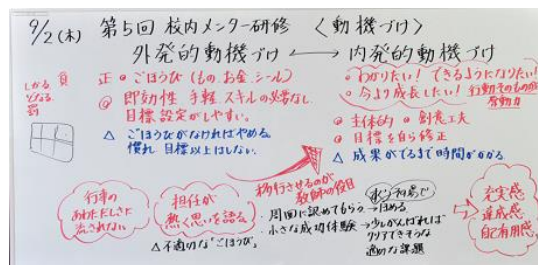 9/2(木) 第5回 校内メンター研修 〈動機づけ〉
外発的動機づけ ←→ 内発的動機づけ
しかる 負
どなる
罰
正 ◎ ごほうび(もの、お金、シール)
◎ 即効性 手軽 スキルの必要なし
目標設定がしやすい。
△ ごほうびがなければやめる。
慣れ 目標以上はしない。
○ わかりたい! できるようになりたい!
○ 今より成長したい! 行動そのものが
原動力
◎ 主体的 ◎ 創意工夫
◎ 目標を自ら修正
△ 成果がでるまで時間がかかる
移行させるのが
教師の役目
行事の
あわただしさに
流されない
担任が
熱く思いを語る
△不適切な「ごほうび」
・周囲に認めてもらう → ほめる
・小さな成功体験 → 少しがんばれば
クリアできそうな
適切な課題
充実感
達成感
自己有用感